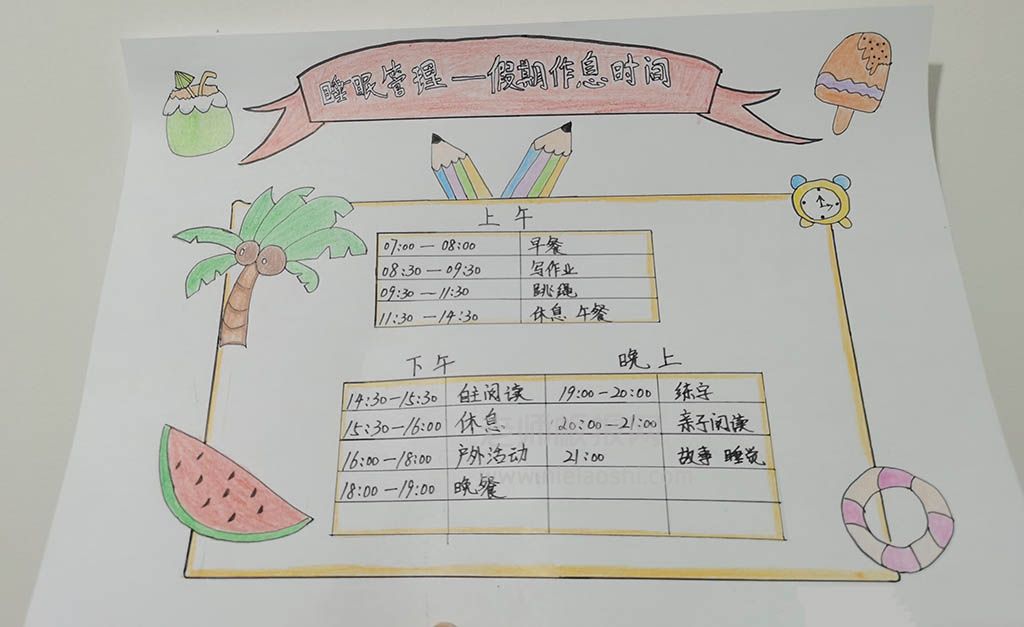 睡眠管理—假期作息时间
上午
07:00—08:00 早餐
08:30—09:30 写作业
09:30—11:30 跳绳
11:30—14:30 休息 午餐
下午 晚上
14:30—15:30 自主阅读 19:00—20:00 练字
15:30—16:00 休息 20:00—21:00 亲子阅读
16:00—18:00 户外活动 21:00 故事 睡觉
18:00—19:00 晚餐